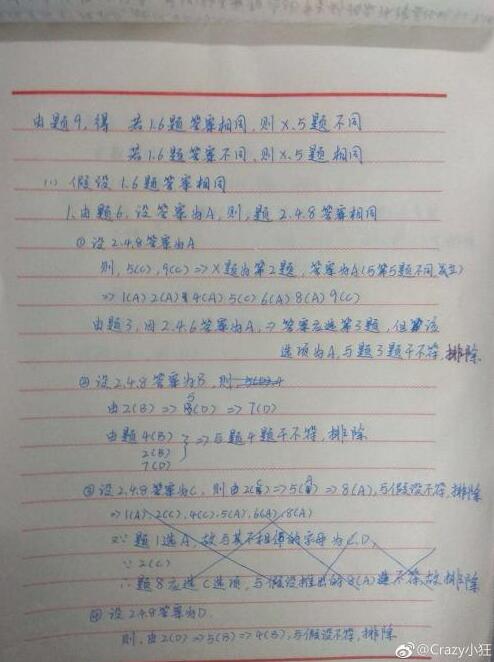 由题9,得 若1.6题答案相同,则X.5题不同
若1.6题答案不同,则X.5题相同
(1) 假设1.6题答案相同
1.由题6,设答案为A,则,题2.4.8答案相同
① 设2.4.8答案为A
则,5(C),9(C) => X题为第2题,答案为A(与第5题不同成立)
=> 1(A) 2(A) 4(A) 5(C) 6(A) 8(A) 9(C)
由题3,因2.4.6答案为A,=> 答案应选第3题,但该
选项为A,与题3题干不符,排除
② 设2.4.8答案为B,则
由2(B) => 5(D) => 7(D)
由题4(B)
2(B)
7(D)
} => 与题4题干不符,排除
③ 设2.4.8答案为C,则由2(C) => 5(A) => 8(A),与假设不符,排除
=> 1(A) 2(C),4(C),5(A),6(A),8(A)
又∵ 题1选A,故与其不相邻的字母为C.D,
∵ 2(C)
∴ 题8应选C选项,与假设推出的8(A)选不符,故排除
④ 设2.4.8答案为D.
则,由2(D) => 5(B) => 4(B),与假设不符,排除
@Crazy小狂